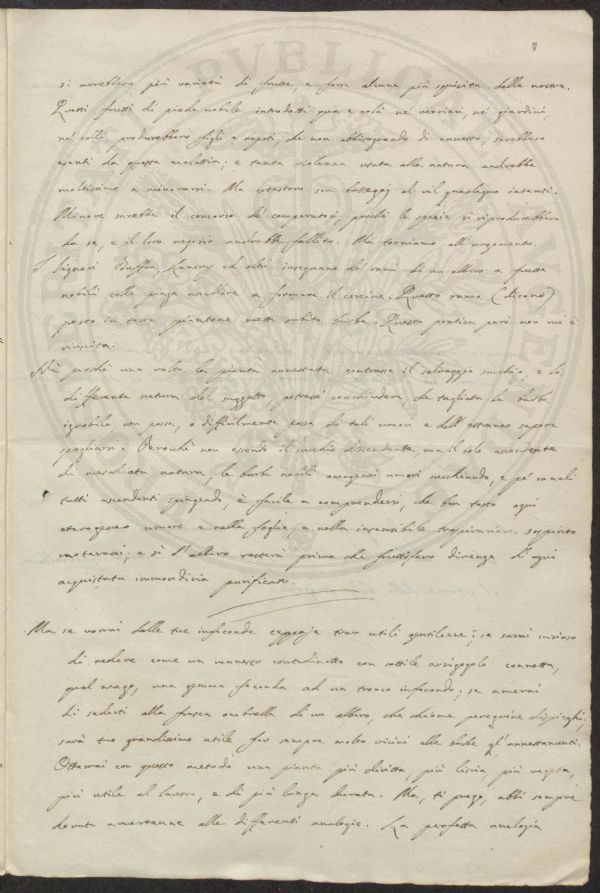 si avrebbero più varietà di frutte, e forse alcuna più squisita delle nostre.
Questi frutti di piede nobile introdotti qua e colà ne' verzieri, ne' giardini,
ne' colli produrrebbero figli e nepoti, che non abbisognando di annesto, sarebbero
esenti da questa malattia; e tanta violenza usata alla natura andrebbe
moltissimo a minorarsi. Ma costoro son al vil guadagno intenti.
Minore sarebbe il concorso de' compratori, poichè le spezie si riprodurrebbero
da se, e il loro negozio andrebbe fallito. Ma torniamo all'argomento.
I Signori Buffon, ed altri insegnano de' rami di un albero a frutta
nobili colla a formare il cercine. Questo ramo (dicono)
posto in terra piantone metta subito barbe. Questa pratica però non mi è
riuscita.
Nè perchè una volta la pianta annestata contrasse il selvaggio succhio, e la
differente natura del suggetto, potrassi conchiudere, che tagliata la barba
ignobile non possa, o difficilmente possa di tali umori e dell'estraneo sapore
spogliarsi. Perocchè non essendo il succhio discendente, ma il solo ascendente
di natura, le barbe nobili omogenei umori succhiando, e pe' canali
tutti ascendenti spingendo, è facile a comprendersi, che ben tosto ogni
eterogeneo umore e nella foglia, e nella insensibile traspirazione sospinto
; e sì l'albero resterà prima che fruttifero divenga d'ogni
acquistata immondizia purificato.
Ma se vorrai dalle tue infeconde ceppaje trar utili gentilezze; se sarai curioso
di vedere come un contadinotto con sottile arzigogolo connetta,
qual mago, una gemma feconda ad un tronco infecondo; se amerai
di sederti alla fresca ombrella di un albero, che chiome peregrine dispieghi;
sarà tuo grandissimo utile far sempre molto vicini alle barbe gl'annestamenti.
Otterrai con questo metodo una pianta più diritta, più liscia, più vegeta,
più utile al lavoro, e di più lunga durata. Ma, ti prego, abbi sempre
dovuta avvertenza alle differenti analogie. La perfetta analogia